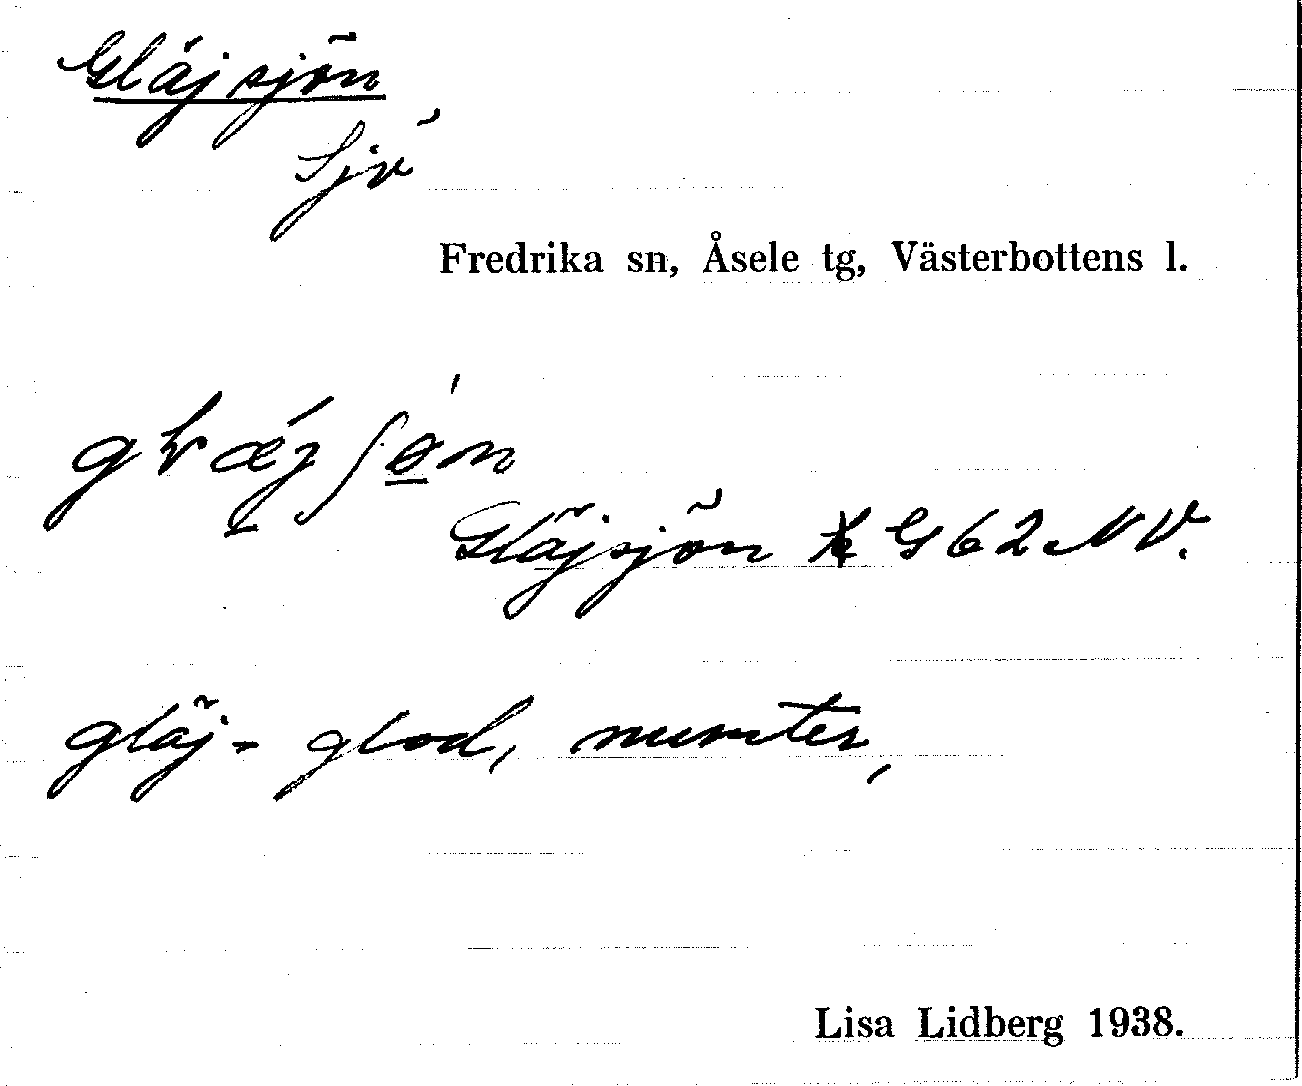 Gläjsjön
Sjö
Fredrika sn, Åsele tg, Västerbottens l.
Gläjsjön G 62 NV.
gläj- glad, munter,
Lisa Lidberg 1938.